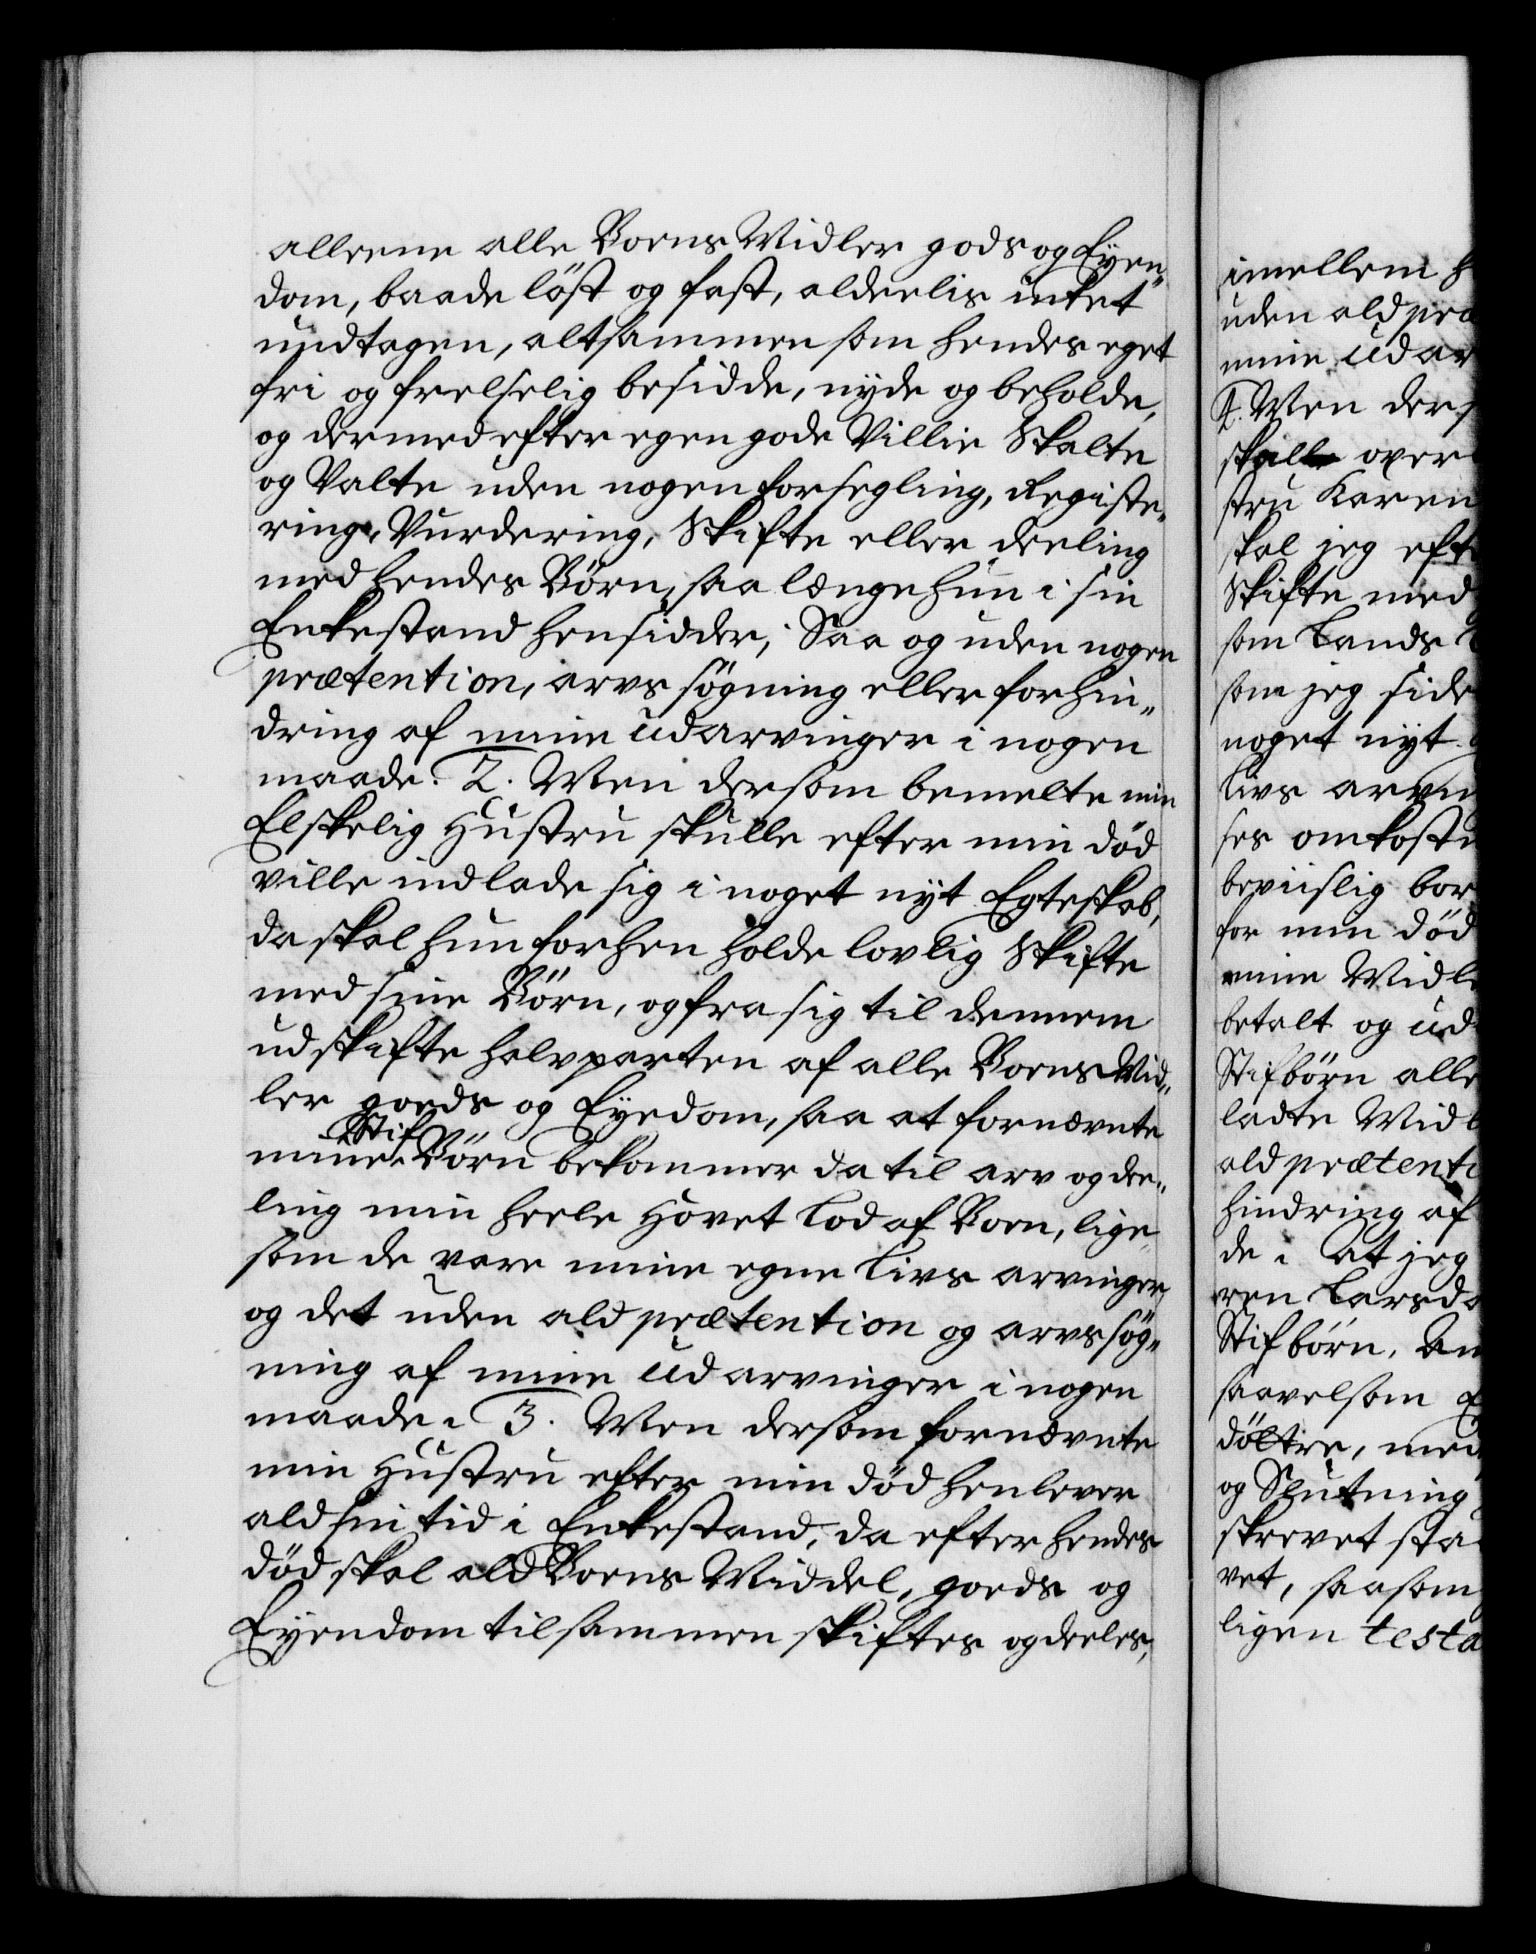 alleene alle Voris Midler gods og Eyen„
dom, baade löst og fast, alderlis intet
undtagen, altsammen som hendes eget
fri og frelselig besidde, nyde og beholde,
og dermed efter egen gode Villie Skalte
og Valte uden nogen forsegling, Registe„
ring, Vurdering, Skifte eller deeling
med hendes Börn, saa længe hun i sin
Enkestand hensidder; Saa og uden nogen
prætention, arvs søgning eller forhin„
dring af mine Udarvinger i nogen
maade. 2. Men dersom bemelte min
Elskelig Hustru skulle efter min död
ville indlade sig i noget nyt Egteskab,
da skal hun forhen holde lovlig Skifte
med sine Börn, og fra sig til dennem
udskifte halvparten af alle Voris Mid„
ler goeds og Eyedom, saa at fornævnte
mine Stif Börn bekommer da til arv og dee„
ling min heele Hovet Lod af Boen, lige„
som de vare mine egne Livs arvinger,
og det uden ald prætention og arvs søg„
ning af mine Udarvinger i nogen
maade. 3. Men dersom fornævnte
min Hustru efter min död henlever
ald sin tid i Enkestand, da efter hendes
död skal ald Voris Middel, goeds og
Eyendom tilsammen skiftes og deeles,
imellem
uden ald præ
mine Udar
4. Men ders
skulle over
stru Karen
skal jeg efte
Skifte med
som Lands
som jeg side
noget nyt
Livs arvin
ses omkostn
beviislig bor
for min död
mine Midle
betalt og ud
Stifbörn alle
ladte Midl
ald prætenti
hindring af
de. At jeg
ren Larsda
Stifbörn,
saavelsom
döttre, med
og Slutning
skrevet sta
vet, saasom
ligen testa